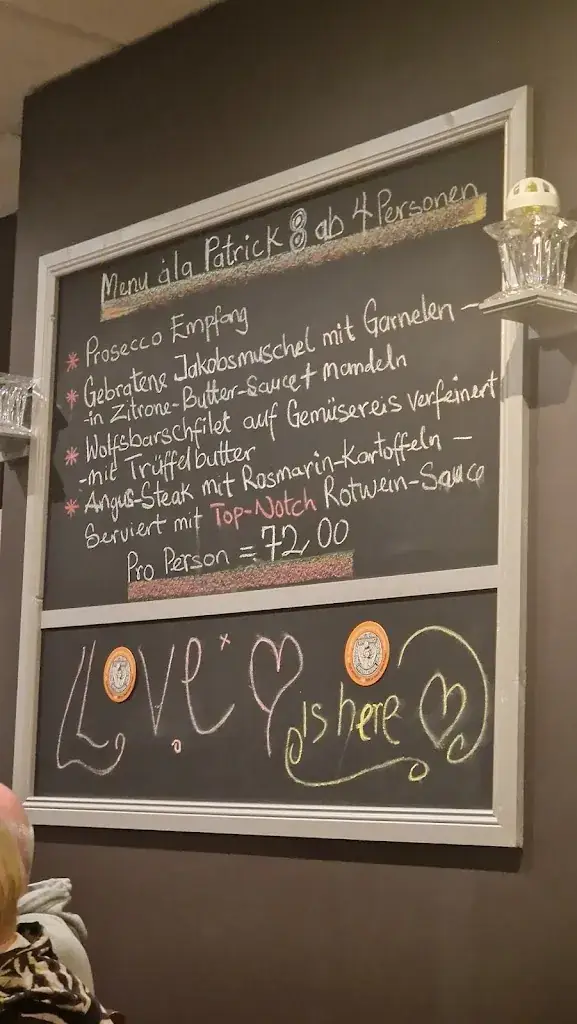 Menu ála Patrick 8 ab 4 Personen
* Prosecco Empfang
* Gebratene Jakobsmuschel mit Garnelen –
-in Zitrone-Butter-Sauce + mandeln
* Wolfsbarschfilet auf Gemüsereis verfeinert
-mit Trüffelbutter
* Angus-Steak mit Rosmarin-Kartoffeln –
Serviert mit Top-Notch Rotwein-Sauce
Pro Person = 72,00
LOVE
is here